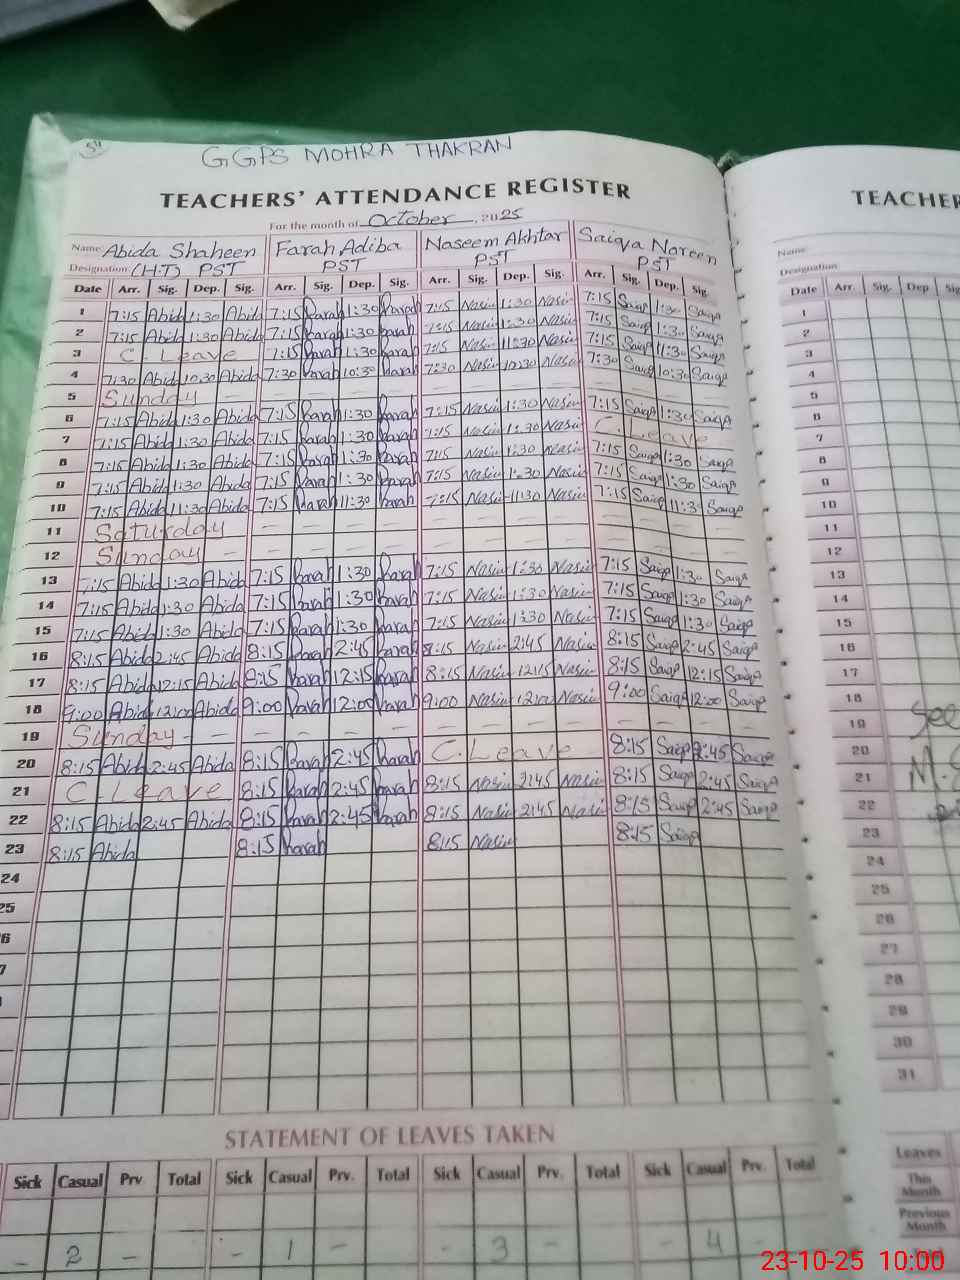 54
GGPS MOHRA THAKRAN
TEACHERS' ATTENDANCE REGISTER
For the month of October, 2025
Name Abida Shaheen Farah Adiba Naseem Akhtar Saiqa Noreen
Designation (H.T) PST PST PST PST
Date Arr. Sig. Dep. Sig. Arr. Sig. Dep. Sig. Arr. Sig. Dep. Sig. Arr. Sig. Dep. Sig.
1 7:15 Abida 1:30 Abida 7:15 Farah 1:30 Farah 7:15 Nasim 1:30 Nasim 7:15 Saiqa 1:30 Saiqa
2 7:15 Abida 1:30 Abida 7:15 Farah 1:30 Farah 7:15 Nasim 1:30 Nasim 7:15 Saiqa 1:30 Saiqa
3 C. Leave 7:15 Farah 1:30 Farah 7:15 Nasim 11:30 Nasim 7:15 Saiqa 11:30 Saiqa
4 7:30 Abida 10:30 Abida 7:30 Farah 10:30 Farah 7:30 Nasim 10:30 Nasim 7:30 Saiqa 10:30 Saiqa
5 Sunday
6 7:15 Abida 1:30 Abida 7:15 Farah 1:30 Farah 7:15 Nasim 1:30 Nasim 7:15 Saiqa 1:30 Saiqa
7 7:15 Abida 1:30 Abida 7:15 Farah 1:30 Farah 7:15 Nasim 1:30 Nasim C. Leave
8 7:15 Abida 1:30 Abida 7:15 Farah 1:30 Farah 7:15 Nasim 1:30 Nasim 7:15 Saiqa 1:30 Saiqa
9 7:15 Abida 1:30 Abida 7:15 Farah 1:30 Farah 7:15 Nasim 1:30 Nasim 7:15 Saiqa 1:30 Saiqa
10 7:15 Abida 11:30 Abida 7:15 Farah 11:30 Farah 7:15 Nasim 11:30 Nasim 7:15 Saiqa 11:30 Saiqa
11 Saturday
12 Sunday
13 7:15 Abida 1:30 Abida 7:15 Farah 1:30 Farah 7:15 Nasim 1:30 Nasim 7:15 Saiqa 1:30 Saiqa
14 7:15 Abida 1:30 Abida 7:15 Farah 1:30 Farah 7:15 Nasim 1:30 Nasim 7:15 Saiqa 1:30 Saiqa
15 7:15 Abida 1:30 Abida 7:15 Farah 1:30 Farah 7:15 Nasim 1:30 Nasim 7:15 Saiqa 1:30 Saiqa
16 8:15 Abida 2:45 Abida 8:15 Farah 2:45 Farah 8:15 Nasim 2:45 Nasim 8:15 Saiqa 2:45 Saiqa
17 8:15 Abida 12:15 Abida 8:15 Farah 12:15 Farah 8:15 Nasim 12:15 Nasim 8:15 Saiqa 12:15 Saiqa
18 9:00 Abida 12:00 Abida 9:00 Farah 12:00 Farah 9:00 Nasim 12:00 Nasim 9:00 Saiqa 12:00 Saiqa
19 Sunday
20 8:15 Abida 2:45 Abida 8:15 Farah 2:45 Farah C. Leave 8:15 Saiqa 2:45 Saiqa
21 C Leave 8:15 Farah 2:45 Farah 8:15 Nasim 2:45 Nasim 8:15 Saiqa 2:45 Saiqa
22 8:15 Abida 2:45 Abida 8:15 Farah 2:45 Farah 8:15 Nasim 2:45 Nasim 8:15 Saiqa 2:45 Saiqa
23 8:15 Abida 8:15 Farah 8:15 Nasim 8:15 Saiqa
24
25
6
7
STATEMENT OF LEAVES TAKEN
Sick Casual Prv Total Sick Casual Prv. Total Sick Casual Prv. Total Sick Casual Prv. Total
- 2 - - 1 - - 3 - - 4 -
TEACHER
Name
Designation
Date Arr. Sig. Dep Sig
1
2
3
4
5
6
7
8
9
10
11
12
13
14
15
16
17
18
19 See
20
21 M.
22
23
24
25
26
27
28
29
30
31
Leaves
This Month
Previous Month
23-10-25 10:00